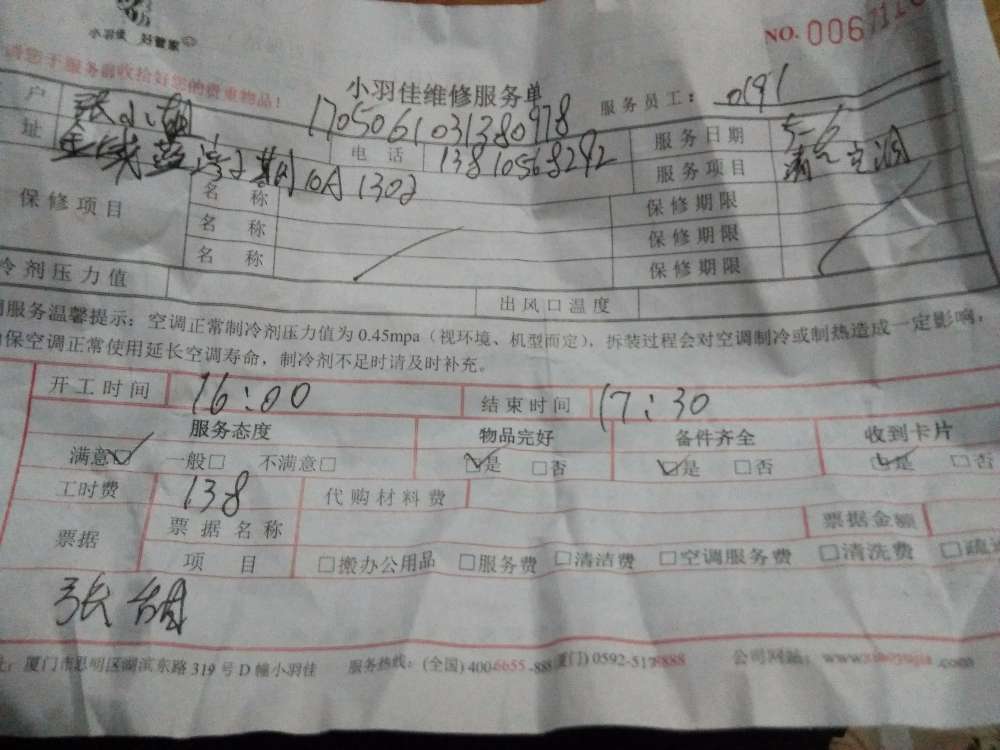 小羽佳 好管家
NO. 0067
请您于服务前收拾好您的贵重物品!
小羽佳维修服务单
服务员工: 0191
1705061031380978
户 张小胡 电话 13810568292 服务日期 5-6
址 10A1302 服务项目 清洗空调
保修项目 名称 保修期限
名称 保修期限
名称 保修期限
冷剂压力值 出风口温度
服务温馨提示: 空调正常制冷剂压力值为 0.45mpa (视环境、机型而定), 拆装过程会对空调制冷或制热造成一定影响,
保空调正常使用延长空调寿命, 制冷剂不足时请及时补充。
开工时间 16:00 结束时间 17:30
服务态度 物品完好 备件齐全 收到卡片
满意☑ 一般□ 不满意□ ☑是 □否 ☑是 □否 ☑是 □否
工时费 138 代购材料费
票据 票据名称 票据金额
项目 □搬办公用品 □服务费 □清洁费 □空调服务费 □清洗费 □疏
张胡
址: 厦门市思明区湖滨东路 319 号 D 幢小羽佳 服务热线: (全国) 400-6655-888 厦门) 0592-517 888 公司网站: www.xiaoyujia.com